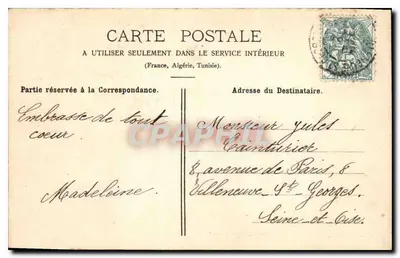 CARTE POSTALE
A UTILISER SEULEMENT DANS LE SERVICE INTÉRIEUR
(France, Algérie, Tunisie).
Partie réservée à la Correspondance.
Adresse du Destinataire.
Embrasse de tout
cœur
Madeleine.
Monsieur Jules
Tainturier
8, avenue de Paris, 8
Villeneuve-St-Georges.
Seine-et-Oise.